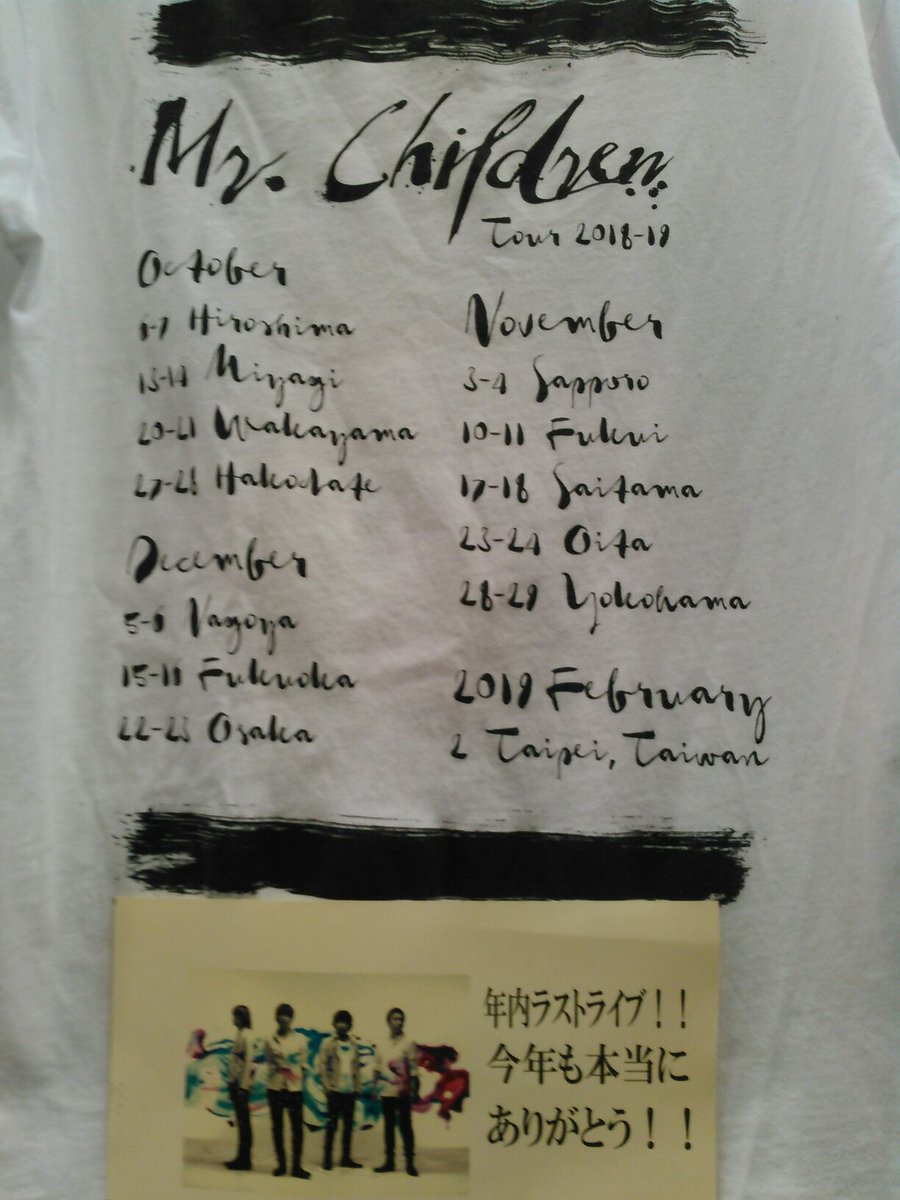 Mr. Children
Tour 2018-19
October
6-7 Hiroshima
13-14 Miyagi
20-21 Wakayama
27-28 Hakodate
November
3-4 Sapporo
10-11 Fukui
17-18 Saitama
23-24 Oita
28-29 Yokohama
December
5-6 Nagoya
15-16 Fukuoka
22-23 Osaka
2019 February
2 Taipei, Taiwan
年内ラストライブ！！
今年も本当に
ありがとう！！